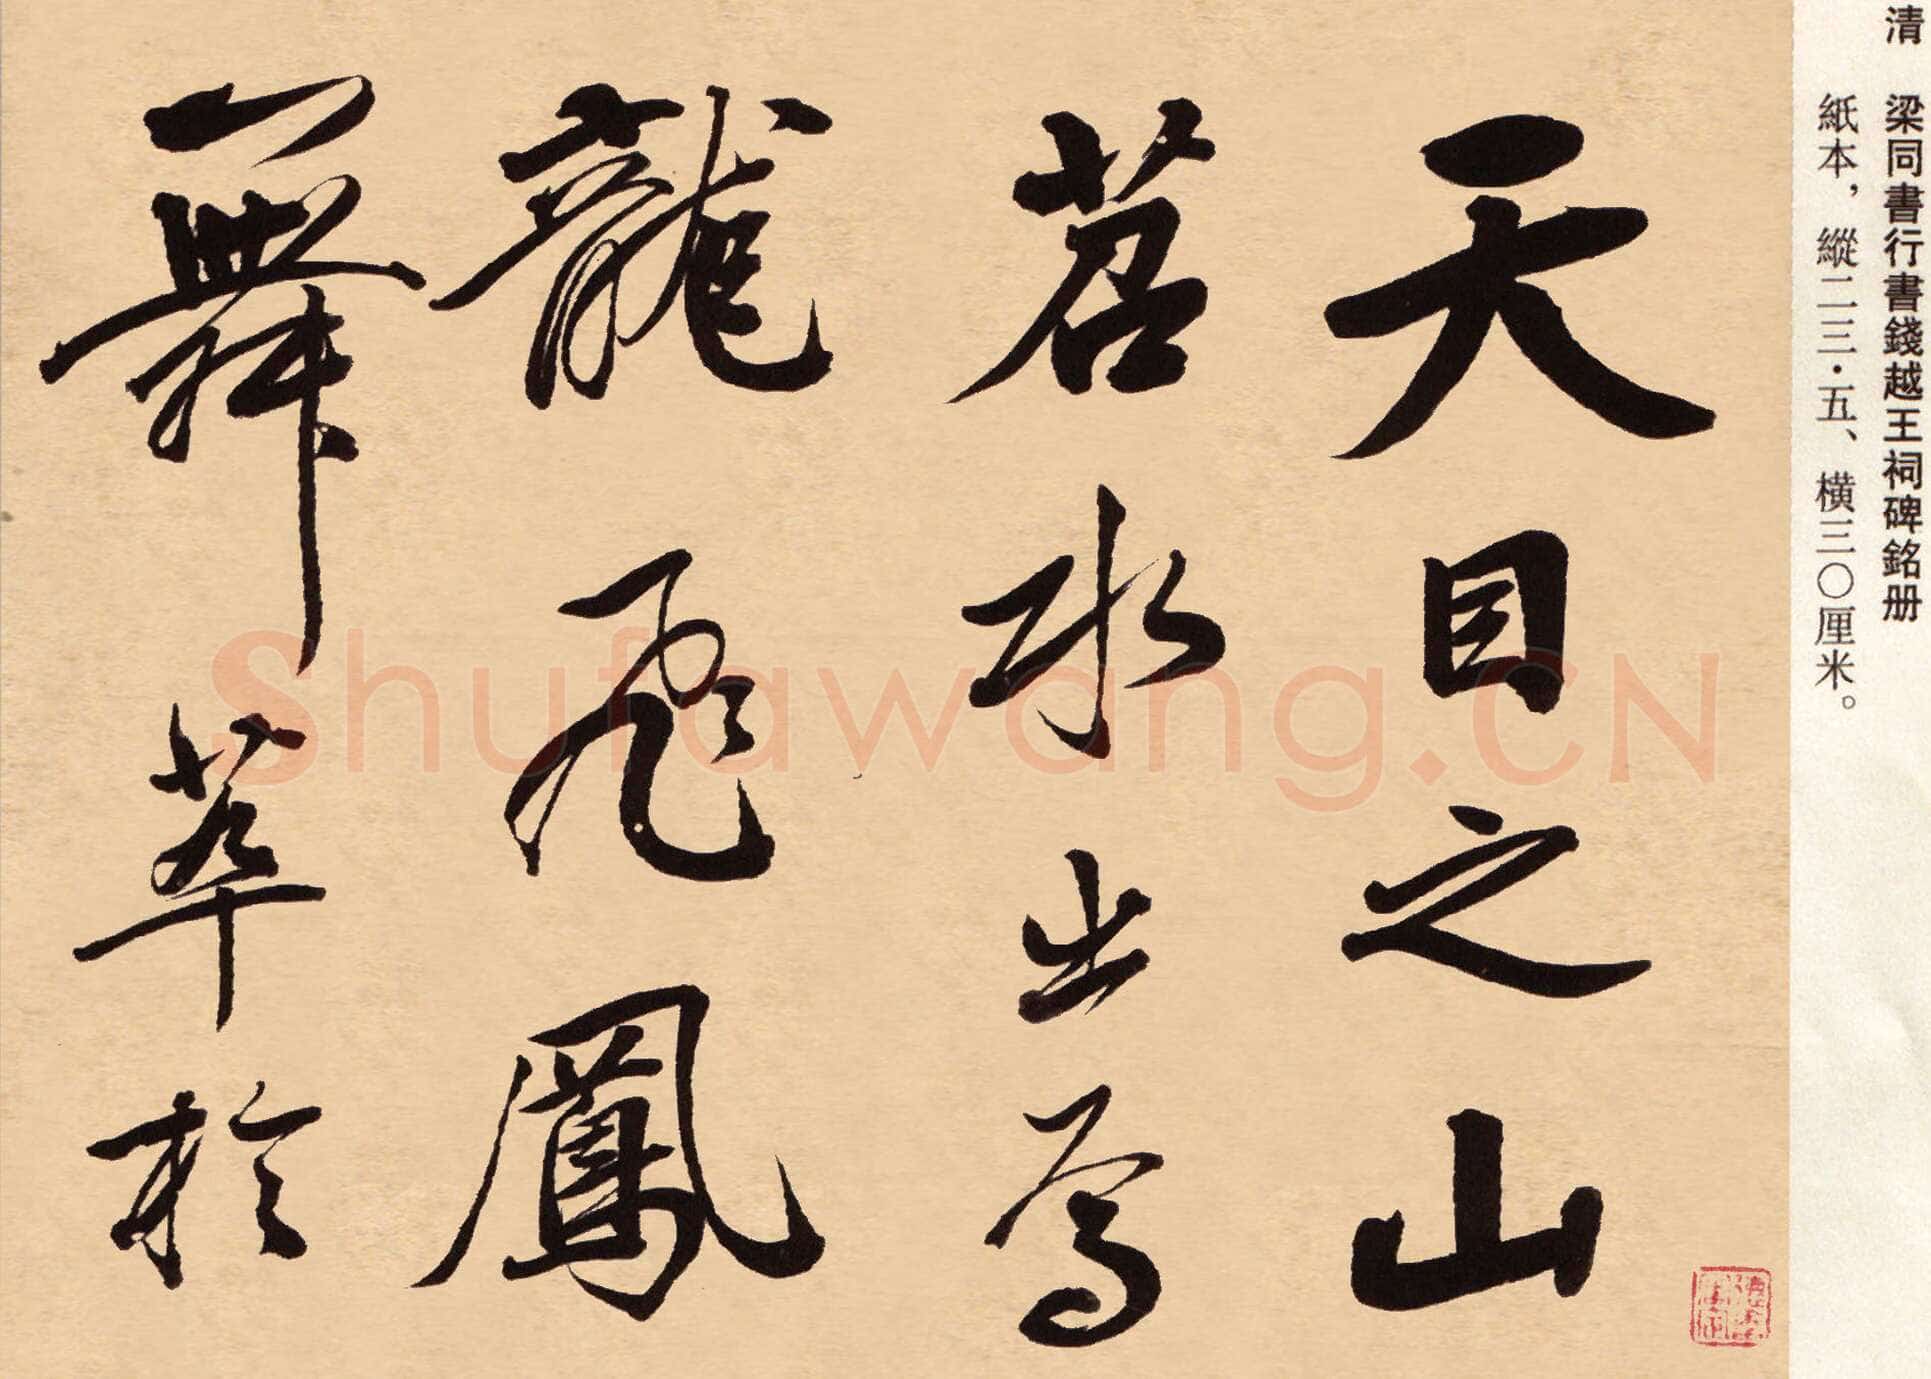 清　梁同書行書錢越王祠碑銘册
紙本，縱二三·五、橫三〇厘米。
天目之山
苕水出焉
龍飛鳳
舞萃於
Shufawang.CN